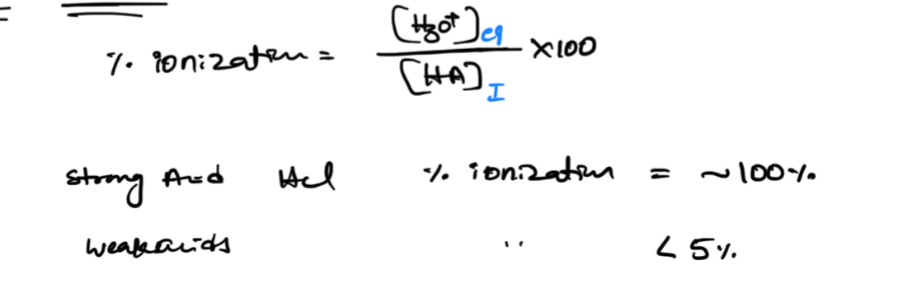 % ionization = [H3O+]eq / [HA]I ×100
Strong Acid HCl % ionization = ~100%
Weak acids " < 5%